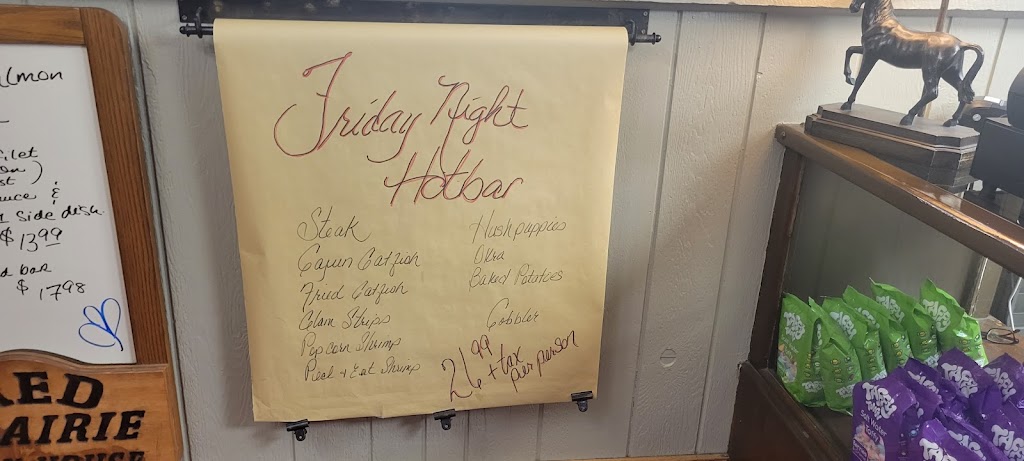 almon
filet
on)
st
uce &
1 Side dish
$13.99
d bar
$17.98
RED
AIRIE
Friday Night
Hotbar
Steak
Cajun Catfish
Fried Catfish
Clam Strips
Popcorn Shrimp
Peel + Eat Shrimp
Hushpuppies
Okra
Baked Potatoes
Cobbler
26.99 + tax
per person